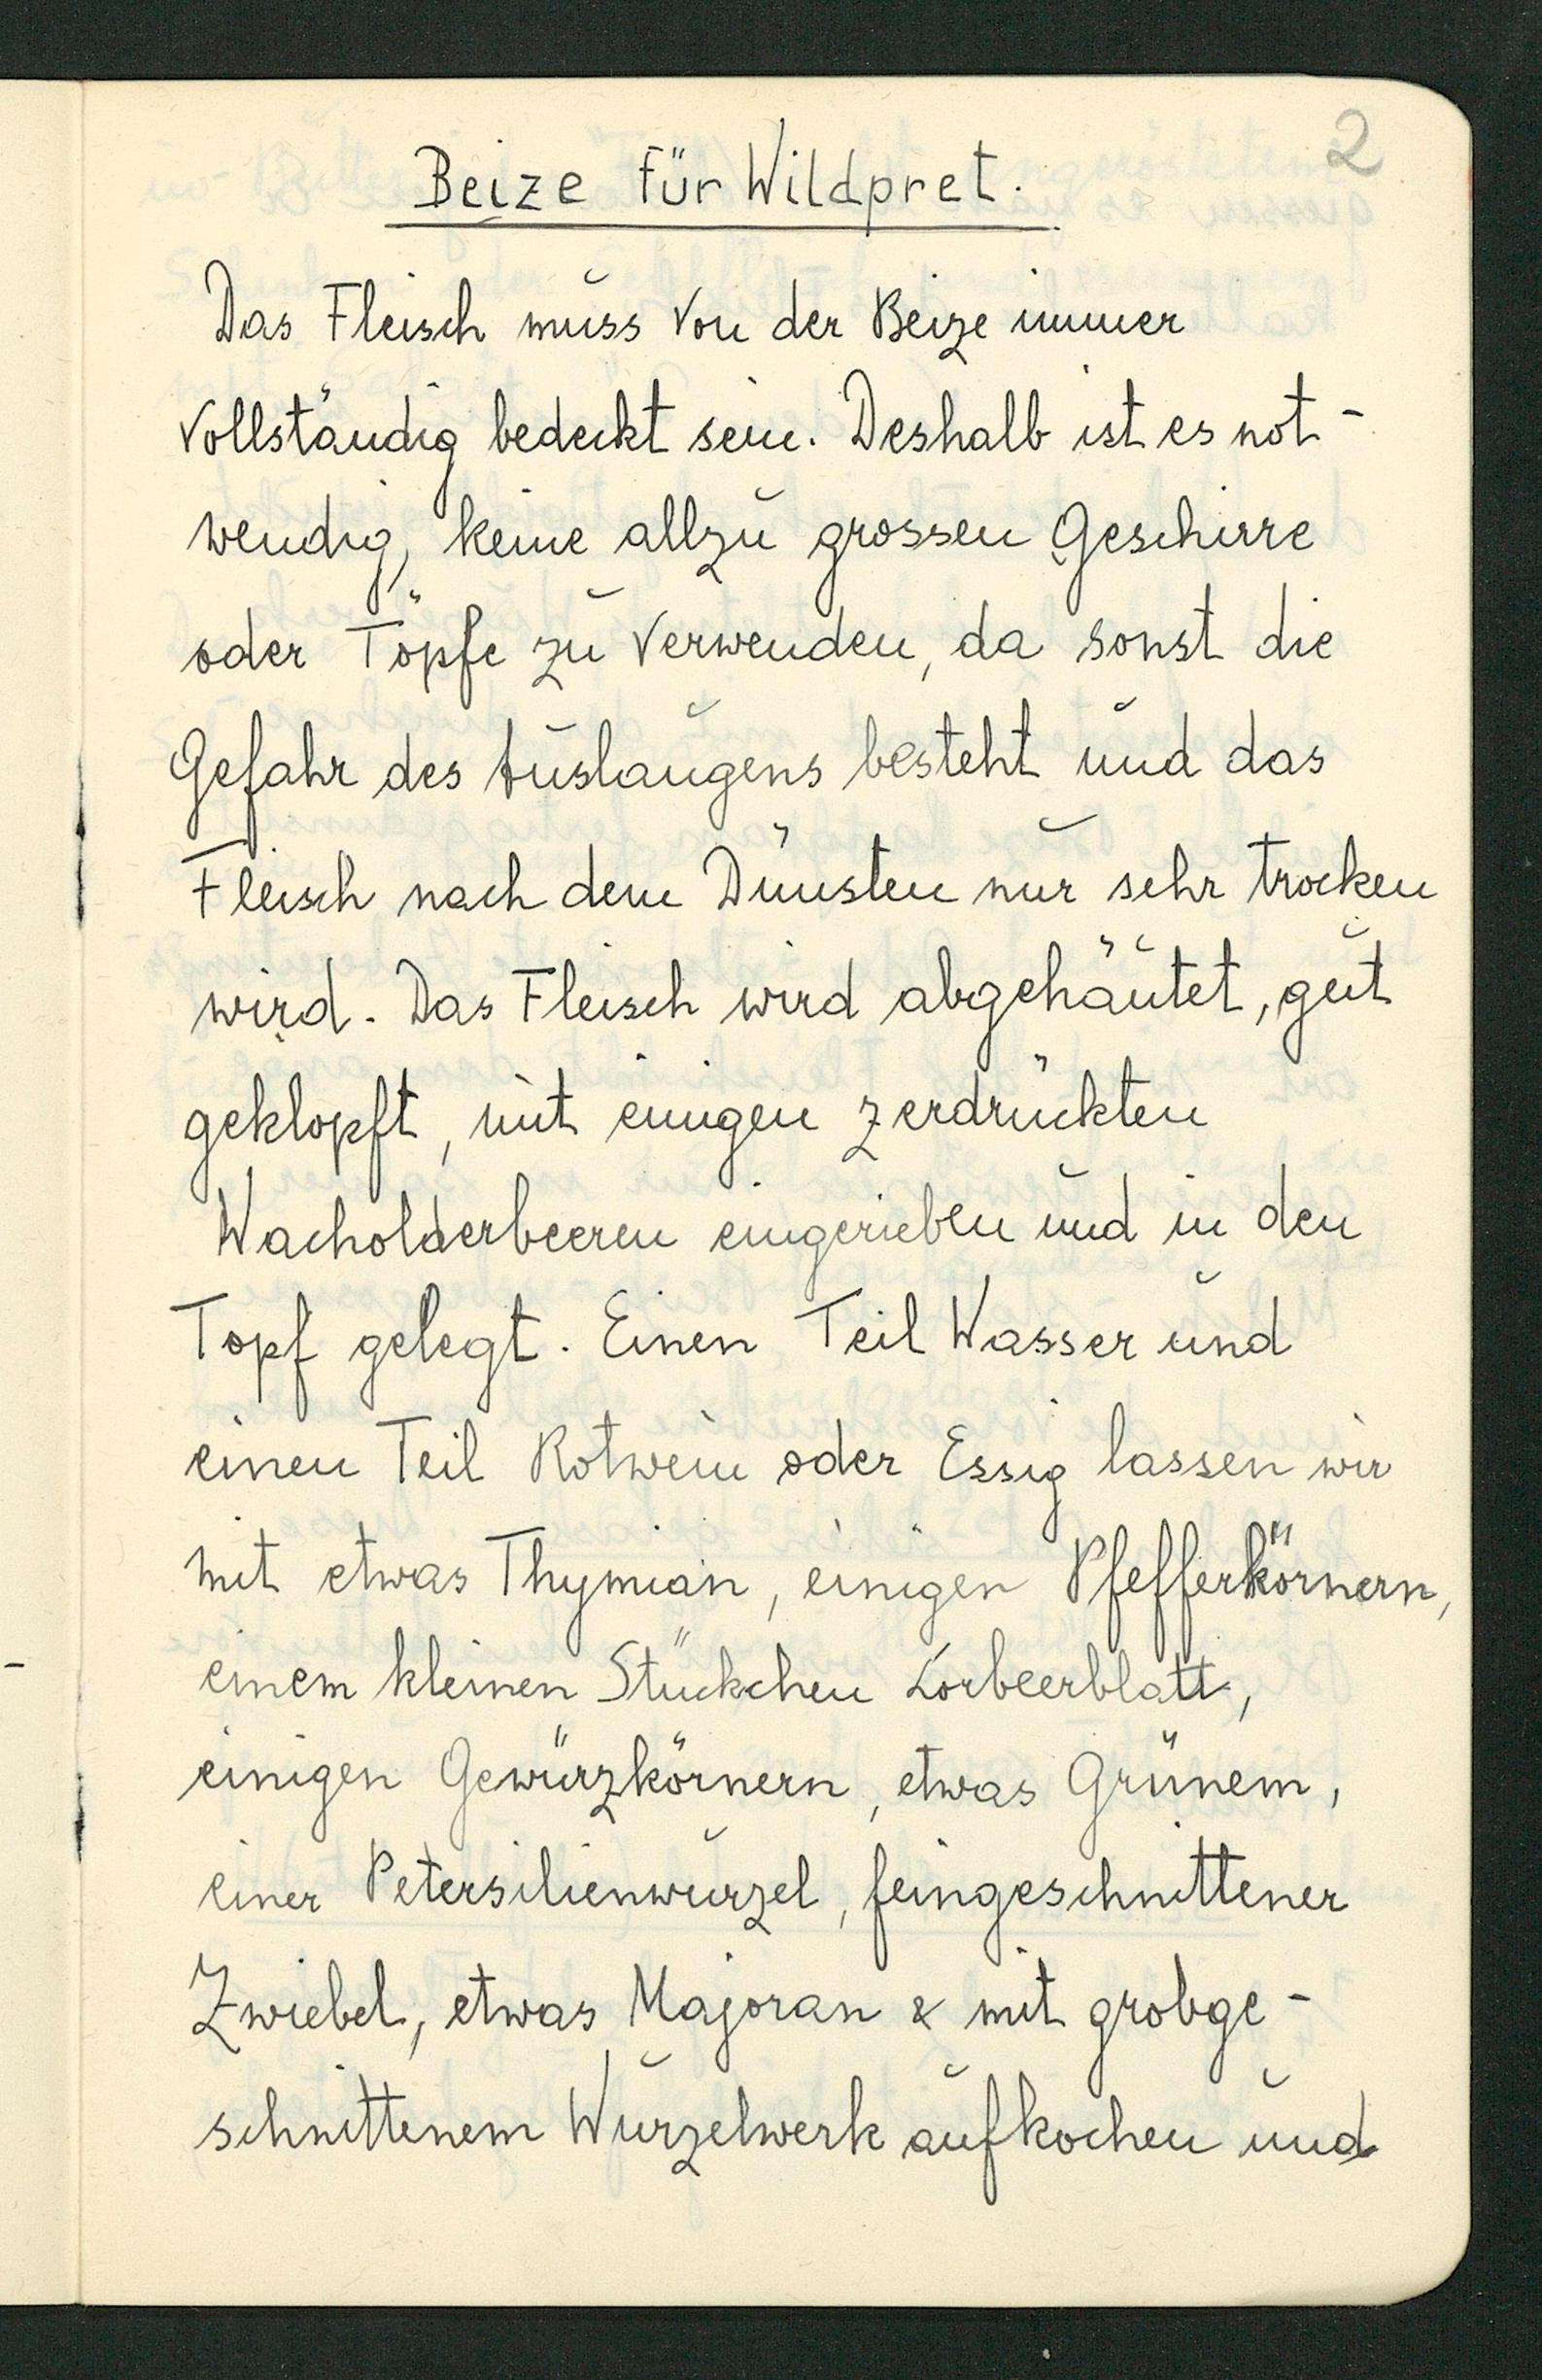 2
Beize für Wildpret.
Das Fleisch muss von der Beize immer
vollständig bedeckt sein. Deshalb ist es not-
wendig, keine allzu grossen Geschirre
oder Töpfe zu verwenden, da sonst die
Gefahr des Auslaugens besteht und das
Fleisch nach dem Dünsten nur sehr trocken
wird. Das Fleisch wird abgehäutet, gut
geklopft, mit einigen zerdrückten
Wacholderbeeren eingerieben und in den
Topf gelegt. Einen Teil Wasser und
einen Teil Rotwein oder Essig lassen wir
mit etwas Thymian, einigen Pfefferkörnern,
einem kleinen Stückchen Lorbeerblatt,
einigen Gewürzkörnern, etwas Grünem,
einer Petersilienwurzel, feingeschnittener
Zwiebel, etwas Majoran & mit grobge-
schnittenem Wurzelwerk aufkochen und